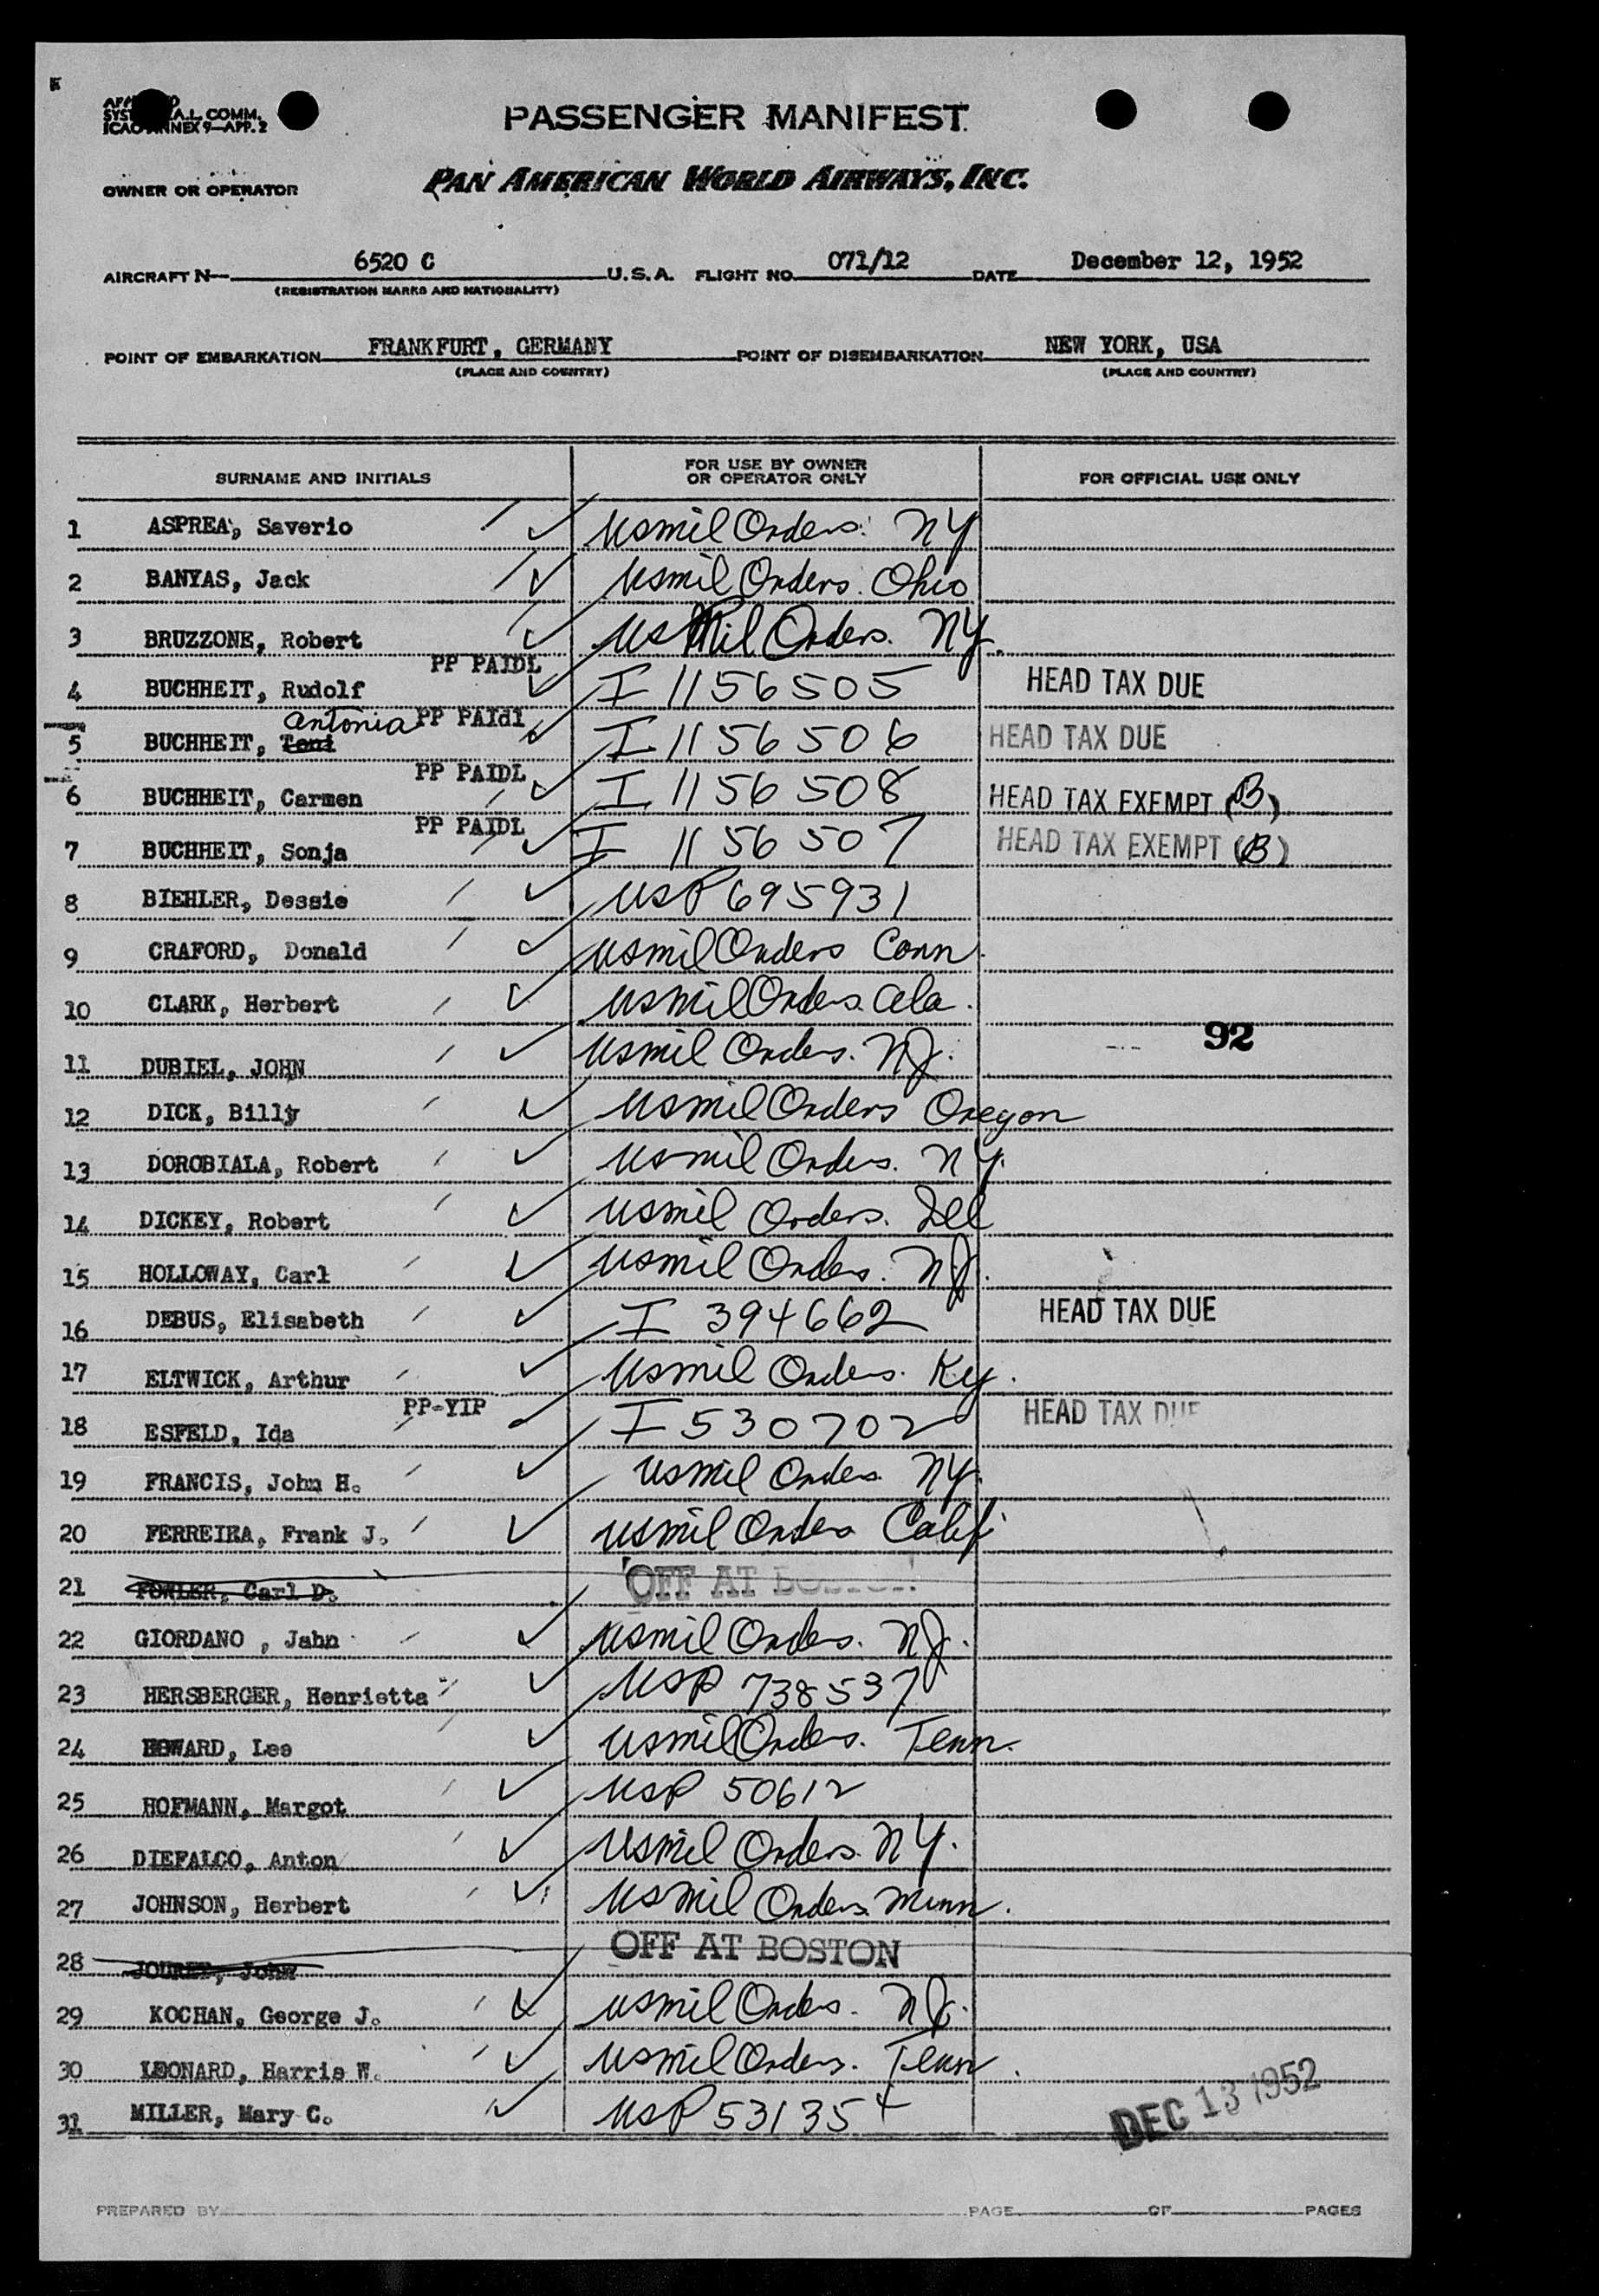 PASSENGER MANIFEST
A.L. COMM.
ICAO ANNEX 9—APP. 2
OWNER OR OPERATOR PAN AMERICAN WORLD AIRWAYS, INC.
AIRCRAFT N— 6520 C U.S.A. FLIGHT NO. 071/12 DATE December 12, 1952
(REGISTRATION MARKS AND NATIONALITY)
POINT OF EMBARKATION FRANKFURT, GERMANY POINT OF DISEMBARKATION NEW YORK, USA
(PLACE AND COUNTRY) (PLACE AND COUNTRY)
SURNAME AND INITIALS FOR USE BY OWNER OR OPERATOR ONLY FOR OFFICIAL USE ONLY
1 ASPREA, Saverio usmil Orders. NY
2 BANYAS, Jack usmil Orders. Ohio
3 BRUZZONE, Robert us Mil Orders. NY.
4 BUCHHEIT, Rudolf PP PAIDL I 1156505 HEAD TAX DUE
5 BUCHHEIT, Toni Antonia PP PAIdl I 1156506 HEAD TAX DUE
6 BUCHHEIT, Carmen PP PAIDL I 1156508 HEAD TAX EXEMPT (B)
7 BUCHHEIT, Sonja PP PAIDL I 1156507 HEAD TAX EXEMPT (B)
8 BIEHLER, Dessie USP 695931
9 CRAFORD, Donald usmil Orders Conn.
10 CLARK, Herbert usmil Orders. Ala.
92
11 DUBIEL, JOHN usmil Orders. NJ.
12 DICK, Billy usmil Orders Oregon
13 DOROBIALA, Robert usmil Orders. NY.
14 DICKEY, Robert usmil Orders. Del
15 HOLLOWAY, Carl usmil Orders. NJ.
16 DEBUS, Elisabeth I 394662 HEAD TAX DUE
17 ELTWICK, Arthur usmil Orders. Ky.
18 ESFELD, Ida PP-YIP I 530702 HEAD TAX DUE
19 FRANCIS, John H. usmil Orders NY.
20 FERREIRA, Frank J. usmil Orders Calif
21 FOWLER, Carl D. OFF AT BOSTON
22 GIORDANO , Jahn usmil Orders. NJ.
23 HERSBERGER, Henrietta USP 738537
24 HOWARD, Lee usmil Orders. Tenn.
25 HOFMANN, Margot USP 50612
26 DIEFALCO, Anton usmil Orders. NY.
27 JOHNSON, Herbert usmil Orders Minn.
28 John OFF AT BOSTON
29 KOCHAN, George J. usmil Orders. NJ.
30 LEONARD, Harris W. usmil Orders. Tenn.
31 MILLER, Mary C. USP 531354
DEC 13 1952
PREPARED BY PAGE OF PAGES